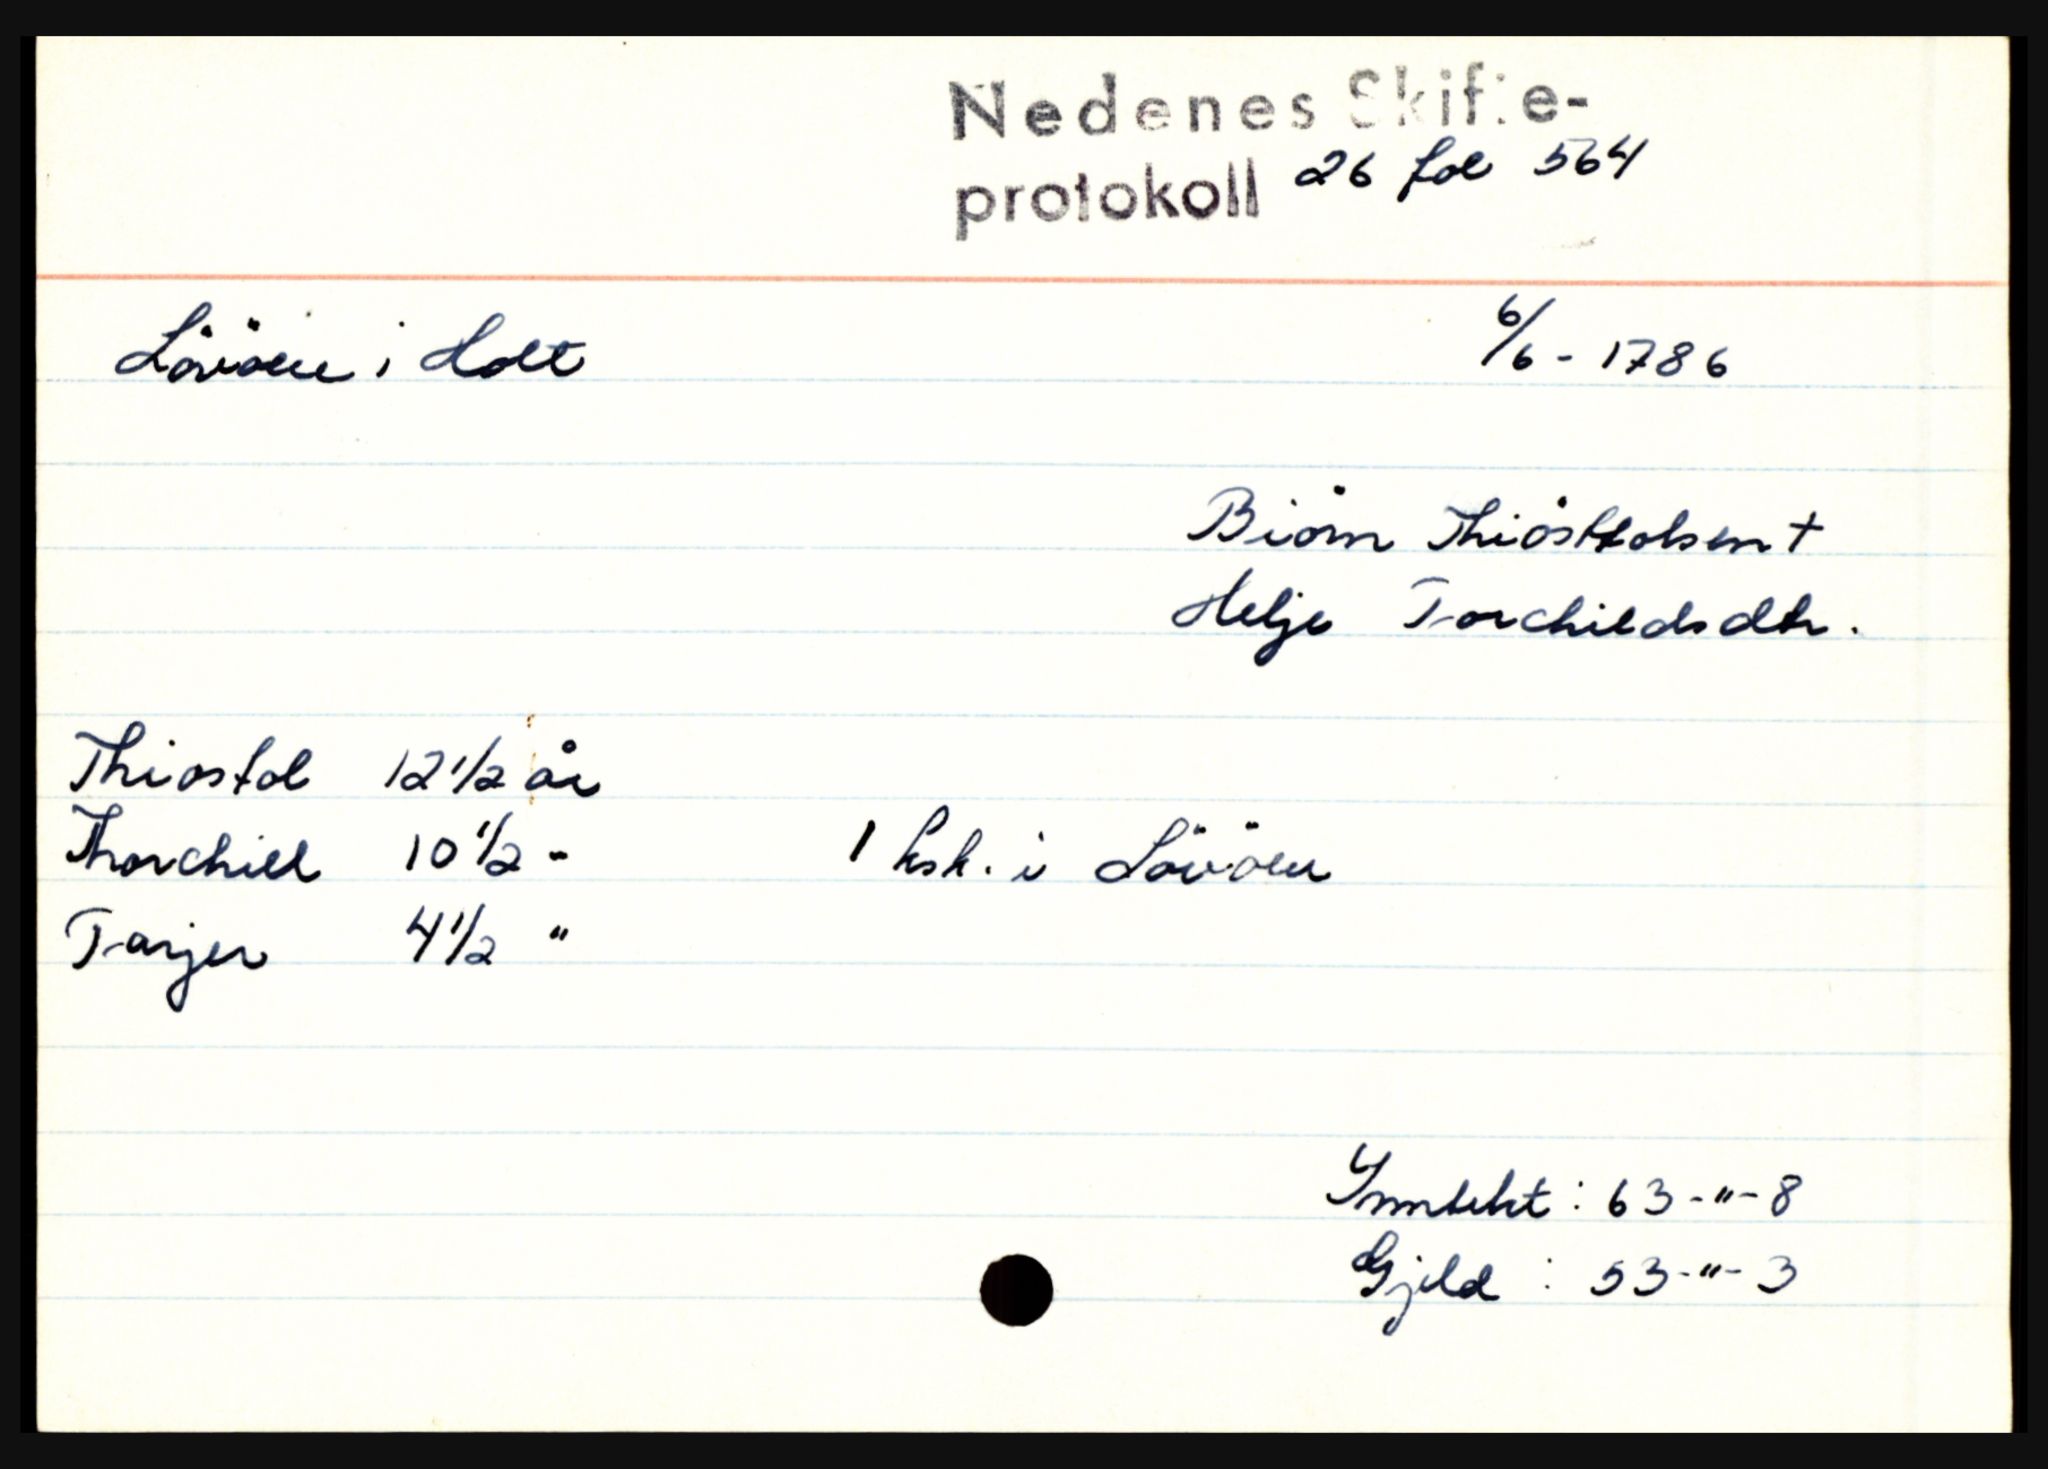 Nedenes Skifte-
protokoll 26 fol 564
Lövöen i Holt 6/6 - 1786
Biörn Thiöstolsen +
Helje Torchildsdtr.
Thiostol 12 1/2 år
Thorchill 10 1/2 - 1 hsk. i Lövöen
Tarjer 4 1/2 "
Ynntekt : 63-"-8
Gjeld : 53-"-3